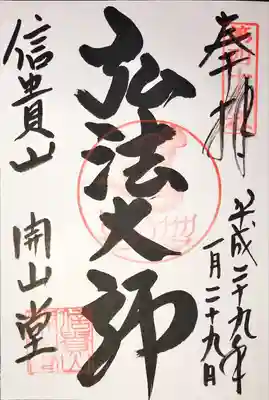 奉拝
平成二十九年
一月二十九日
弘法大師
信貴山 開山堂